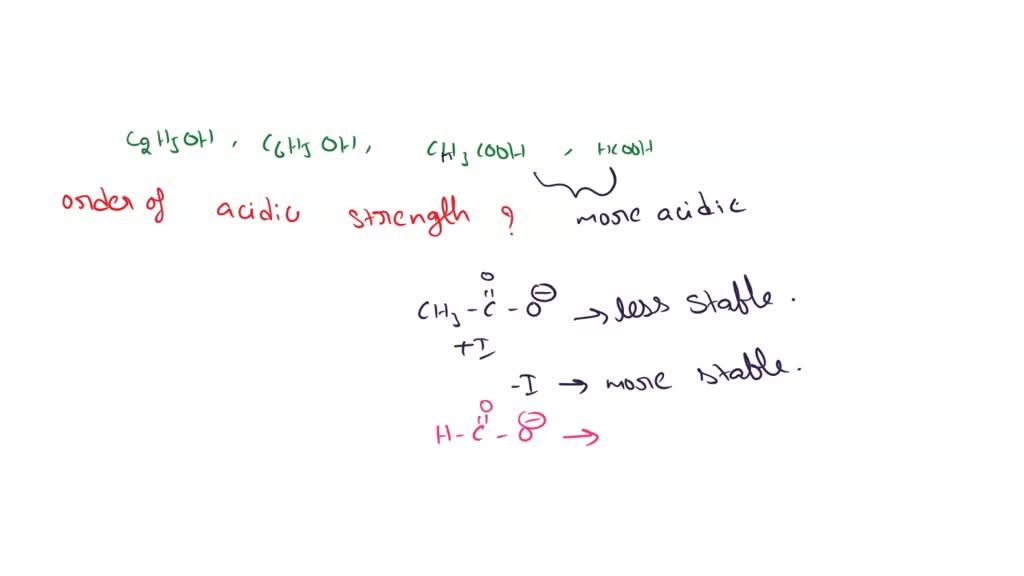 C2H5OH, C6H5OH, CH3COOH, HCOOH
order of acidic strength ? more acidic
O
CH3-C-O⊖ → less stable.
+I
-I → more stable.
O
H-C-O⊖ →